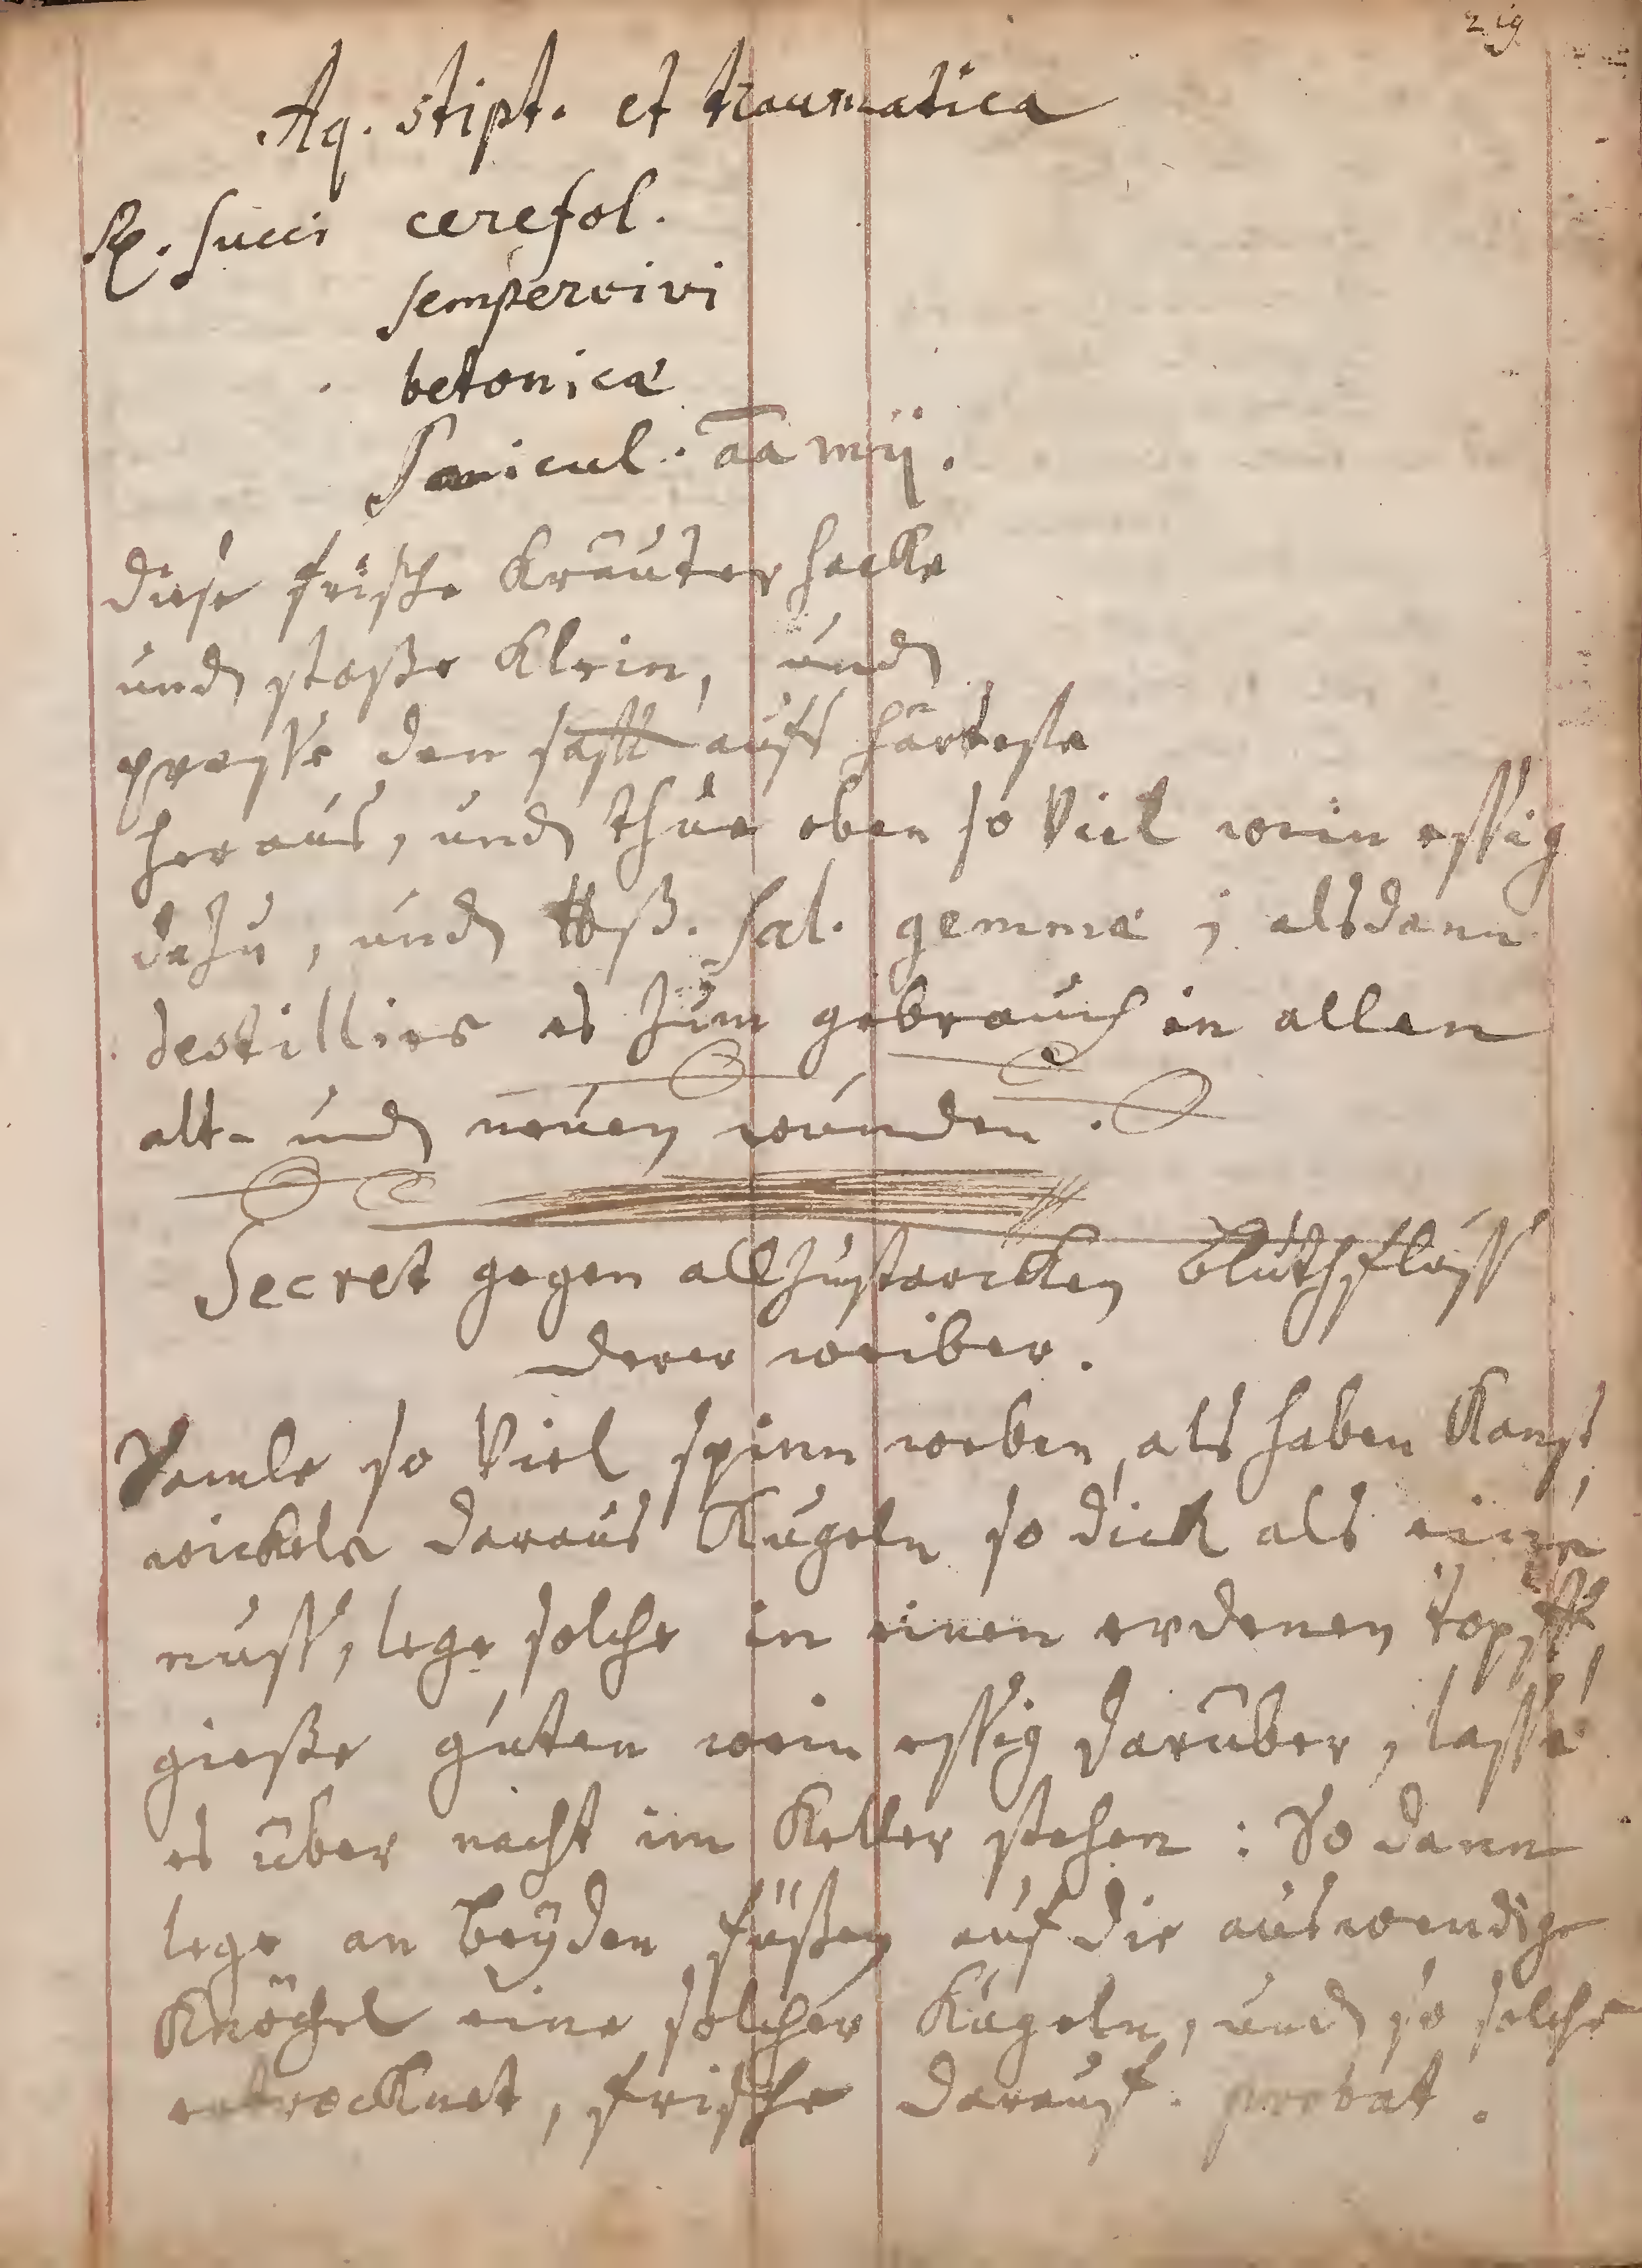 219
Aq. stipt. et traumatica
Rx. succi cerefol.
sempervivi
betonicæ
Sanicul. āā mij.
diese frische Kräuter hacke
und stoße klein, und
presse den safft auffs härteste
heraus, und thue eben so viel wein essig
dazu, und ℔ß. sal. gemmæ, alsdann
destillier es zum gebrauch in allen
alt- und neuen wunden.
Secret gegen allzustarcken bluthfluss
derer weiber.
Samle so viel spinn weben, als haben kanst,
wickele daraus Kugeln so dick als eine
nuss, lege solche in einen erdenen topff,
gieße guten wein essig darüber, lasse
es über nacht im Keller stehen: So dann
lege an beÿden füßen auf die auswendige
Knöchel eine solcher Kugeln, und so solche
ertrocknet, frische darauf. probat.